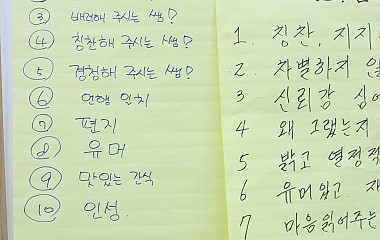 ③ 배려해 주시는 쌤?
④ 칭찬해 주시는 쌤?
⑤ 경청해 주시는 쌤?
⑥ 언행 일치
⑦ 편지
⑧ 유머
⑨ 맛있는 간식
⑩ 인성.
1. 칭찬, 지지
2. 차별하지 않
3 신뢰감 심어
4 왜 그랬는지
5 밝고 열정적
6 유머있고.
7 마음읽어주는